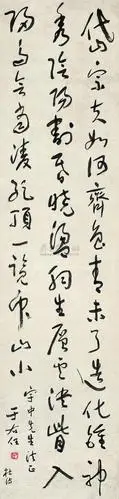 岱宗夫如何齊魯青未了造化鍾神
秀陰陽割昏曉盪胸生層雲決眥入
歸鳥會當凌絕頂一覽眾山小
宇中先生法正
于右任
杜詩